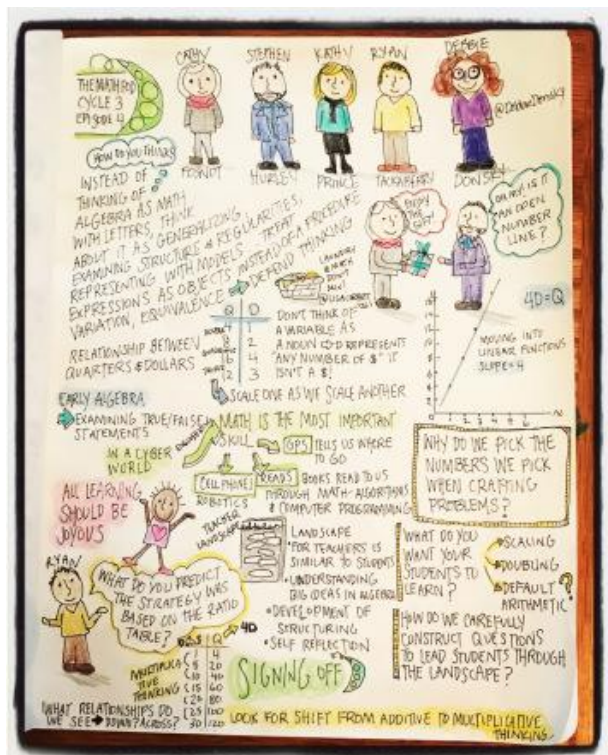 CATHY
STEPHEN
KATHY
RYAN
DEBBIE
THE MATH POD
CYCLE 3
EPISODE 4
FOSNOT
HURLEY
PRINCE
TACKABERRY
DONSKY
HOW DO YOU THINK?
INSTEAD OF
THINKING OF
ALGEBRA AS MATH
WITH LETTERS, THINK
ABOUT IT AS GENERALIZING
EXAMINING STRUCTURE & REGULARITIES,
REPRESENTING WITH MODELS TREAT
EXPRESSIONS AS OBJECTS INSTEAD OF A PROCEDURE
VARIATION, EQUIVALENCE DEFEND THINKING
ENJOY
THE
GIFT!
OH MY, IS IT
AN OPEN
NUMBER
LINE?
LAUNDRY
& MATH
DON'T
MIX!
RELATIONSHIP BETWEEN
QUARTERS & DOLLARS
Q D
4
8 2
6 4
12 3
DON'T THINK OF
A VARIABLE AS
A NOUN D REPRESENTS
"ANY NUMBER OF $" IT
ISN'T A $!
SCALE ONE AS WE SCALE ANOTHER
4D=Q
MOVING INTO
LINEAR FUNCTIONS
SLOPE=4
1 2 3 4 5 6
EARLY ALGEBRA
EXAMINING TRUE/FALSE
STATEMENTS
MATH IS THE MOST IMPORTANT
SKILL
IN A CYBER
WORLD
GPS TELLS US WHERE
TO GO
CELL PHONE
ROBOTICS
READS BOOKS READ TO US
THROUGH MATH-ALGORITHMS
& COMPUTER PROGRAMMING
WHY DO WE PICK THE
NUMBERS WE PICK
WHEN CRAFTING
PROBLEMS?
ALL LEARNING
SHOULD BE
JOYOUS
TEACHER
LANDSCAPE
LANDSCAPE
• FOR TEACHERS IS
SIMILAR TO STUDENTS
• UNDERSTANDING
BIG IDEAS IN ALGEBRA
• DEVELOPMENT OF
STRUCTURING
• SELF REFLECTION
WHAT DO YOU
WANT YOUR
STUDENTS TO
LEARN?
SCALING
DOUBLING
DEFAULT
ARITHMETIC?
HOW DO WE CAREFULLY
CONSTRUCT QUESTIONS
TO LEAD STUDENTS THROUGH
THE LANDSCAPE?
RYAN
WHAT DO YOU PREDICT
THE STRATEGY WAS
BASED ON THE RATIO
TABLE?
4D
Q
4
5 20
10 40
15 60
20 80
25 100
30 120
MULTIPLICA
TIVE
THINKING
WHAT RELATIONSHIPS DO
WE SEE → DOWN? ACROSS?
SIGNING OFF
LOOK FOR SHIFT FROM ADDITIVE TO MULTIPLICATIVE
THINKING